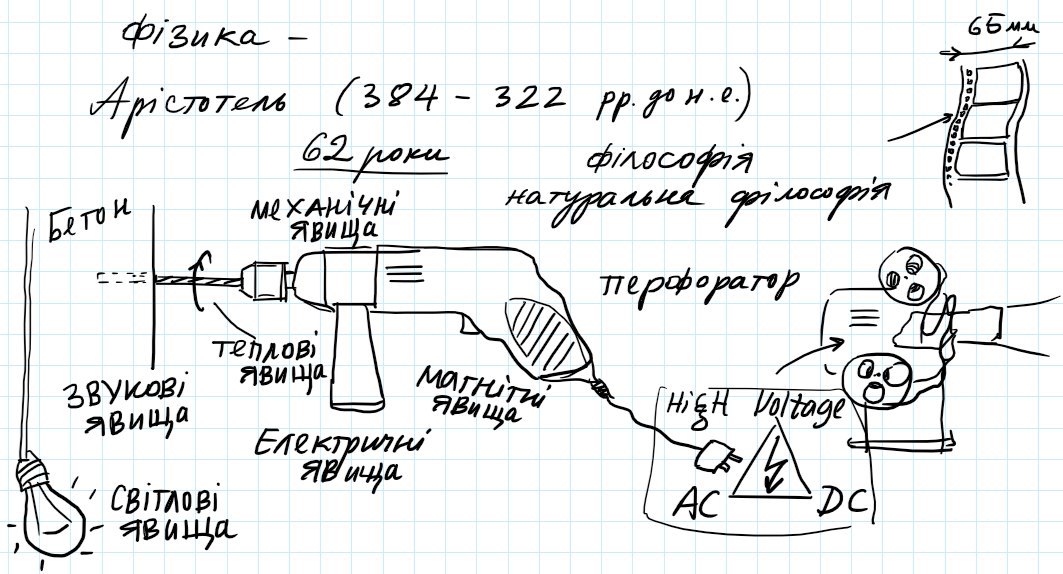 фізика –
65 мм
Арістотель (384 – 322 рр. до н.е.)
62 роки
філософія
натуральна філософія
Бетон
механічні
явища
перфоратор
теплові
явища
звукові
явища
магнітні
явища
High Voltage
Електричні
явища
AC DC
світлові
явища